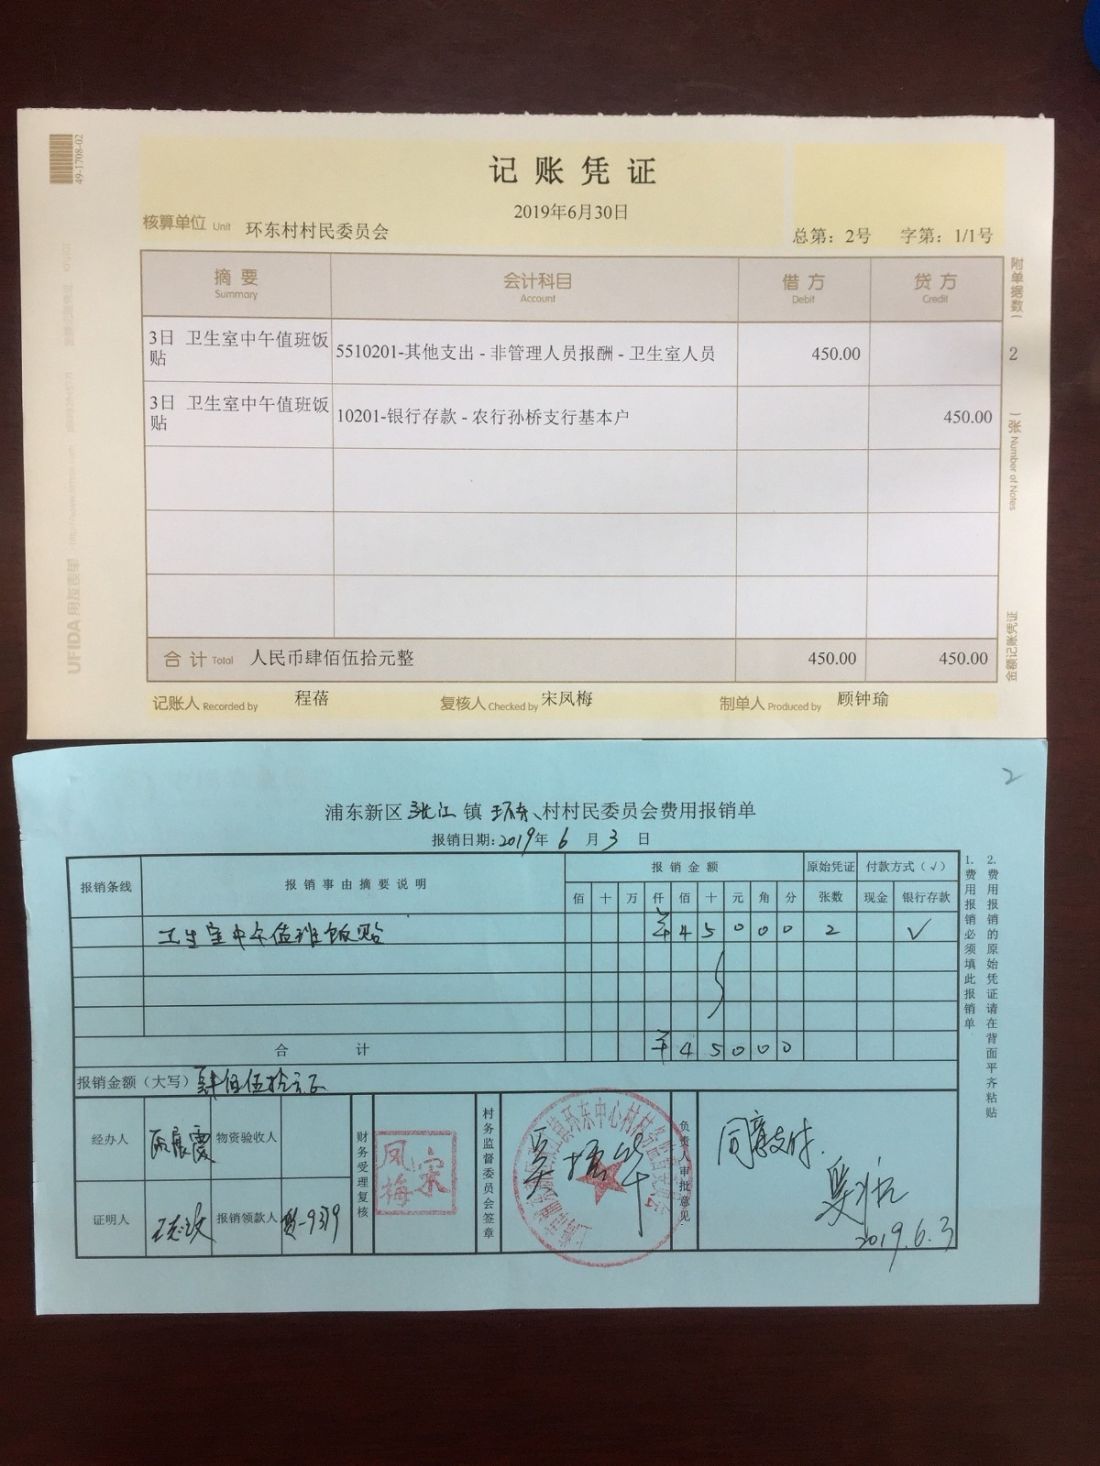 49-1708-02
记账凭证
2019年6月30日
核算单位 Unit 环东村村民委员会
总第：2号 字第：1/1号
摘要 会计科目 借方 贷方
Summary Account Debit Credit
3日 卫生室中午值班饭
贴
5510201-其他支出 - 非管理人员报酬 - 卫生室人员 450.00
3日 卫生室中午值班饭
贴
10201-银行存款 - 农行孙桥支行基本户 450.00
合计 Total 人民币肆佰伍拾元整 450.00 450.00
记账人 Recorded by 程蓓 复核人 Checked by 宋凤梅 制单人 Produced by 顾钟瑜
附单据数（ 2 ）张 Number of Notes
金额记账凭证
UFIDA
2
浦东新区张江镇环东村村民委员会费用报销单
报销日期：2019年6月3日
报销条线 报销事由摘要说明 报销金额 原始凭证 付款方式（√）
佰 十 万 仟 佰 十 元 角 分 张数 现金 银行存款
卫生室中午值班饭贴 ¥ 4 5 0 0 0 2 √
合计 ¥ 4 5 0 0 0
报销金额（大写）肆佰伍拾元正
经办人 物资验收人
证明人 报销领款人
财务受理复核
宋凤梅
村务监督委员会签章
负责人审批意见
同意支付.
2019.6.3
1.费用报销必须填此报销单
2.费用报销的原始凭证请在背面平齐粘贴